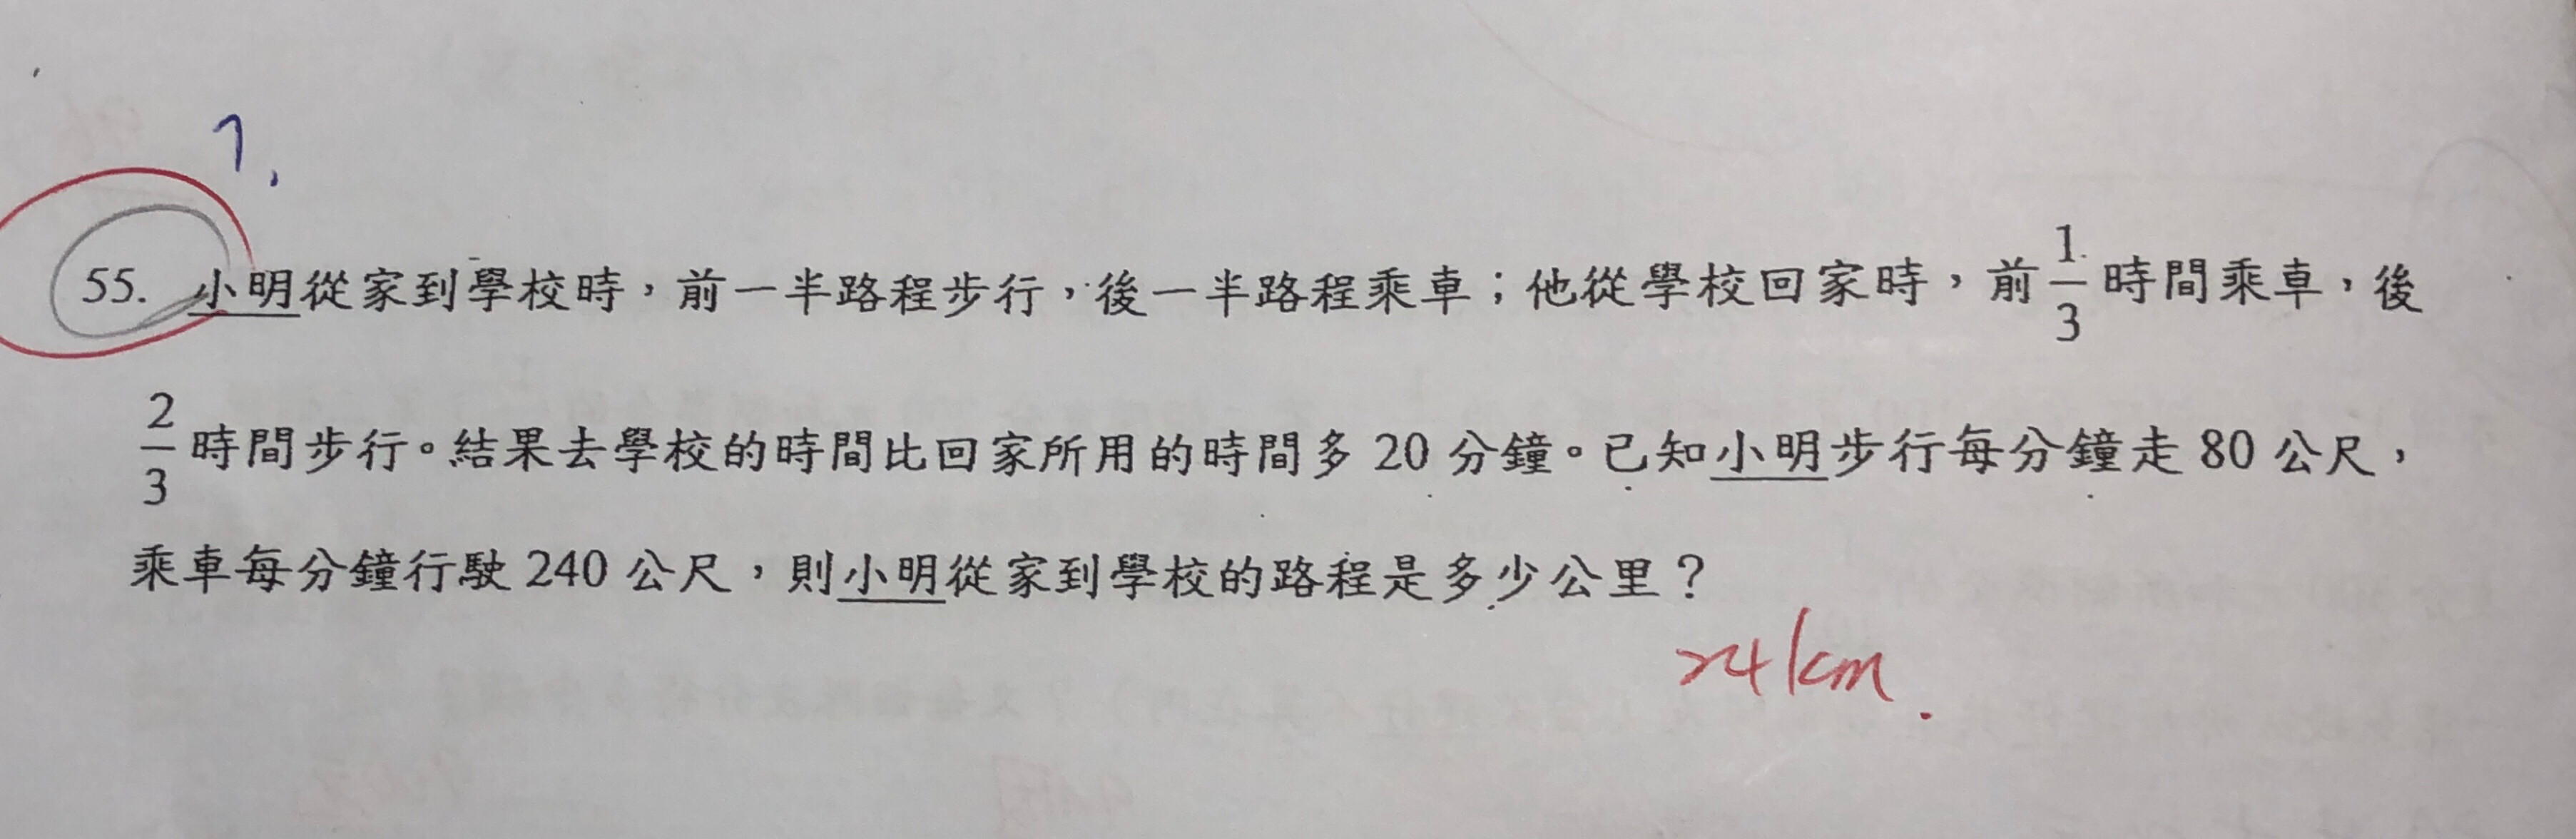 7.
55. 小明從家到學校時，前一半路程步行，後一半路程乘車；他從學校回家時，前1/3時間乘車，後
2/3時間步行。結果去學校的時間比回家所用的時間多 20 分鐘。已知小明步行每分鐘走 80 公尺，
乘車每分鐘行駛 240 公尺，則小明從家到學校的路程是多少公里？
24km.